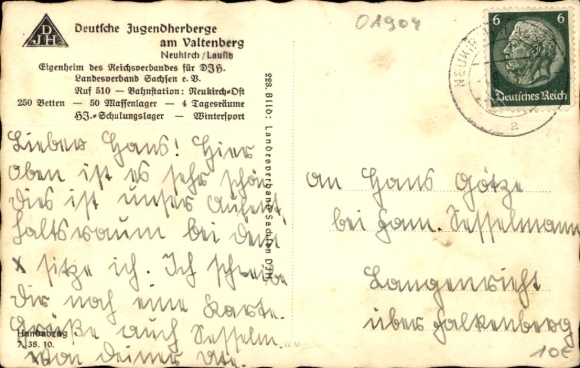 D
JH
Deutsche Jugendherberge
am Valtenberg
Neukirch/Lausitz
Eigenheim des Reichsverbandes für DJH.
Landesverband Sachsen e.V.
Ruf 510 — Bahnstation: Neukirch-Ost
250 Betten — 50 Massenlager — 4 Tagesräume
HJ.-Schulungslager — Wintersport
01904
6 6
Deutsches Reich
NEUKIRCH
a
Lieber Hans! Hier
oben ist es sehr schön
dies ist unser Aufent-
haltsraum bei dem
x sitze ich. Ich schreibe
Dir noch eine Karte.
Grüße auch Sesselm.
von Deiner
Handabzug
7. 38. 10.
228. Bild: Landesverband Sachsen DJH
An Hans Götze
bei Fam. Sesselmann
Langenrieht
über Falkenberg
10€